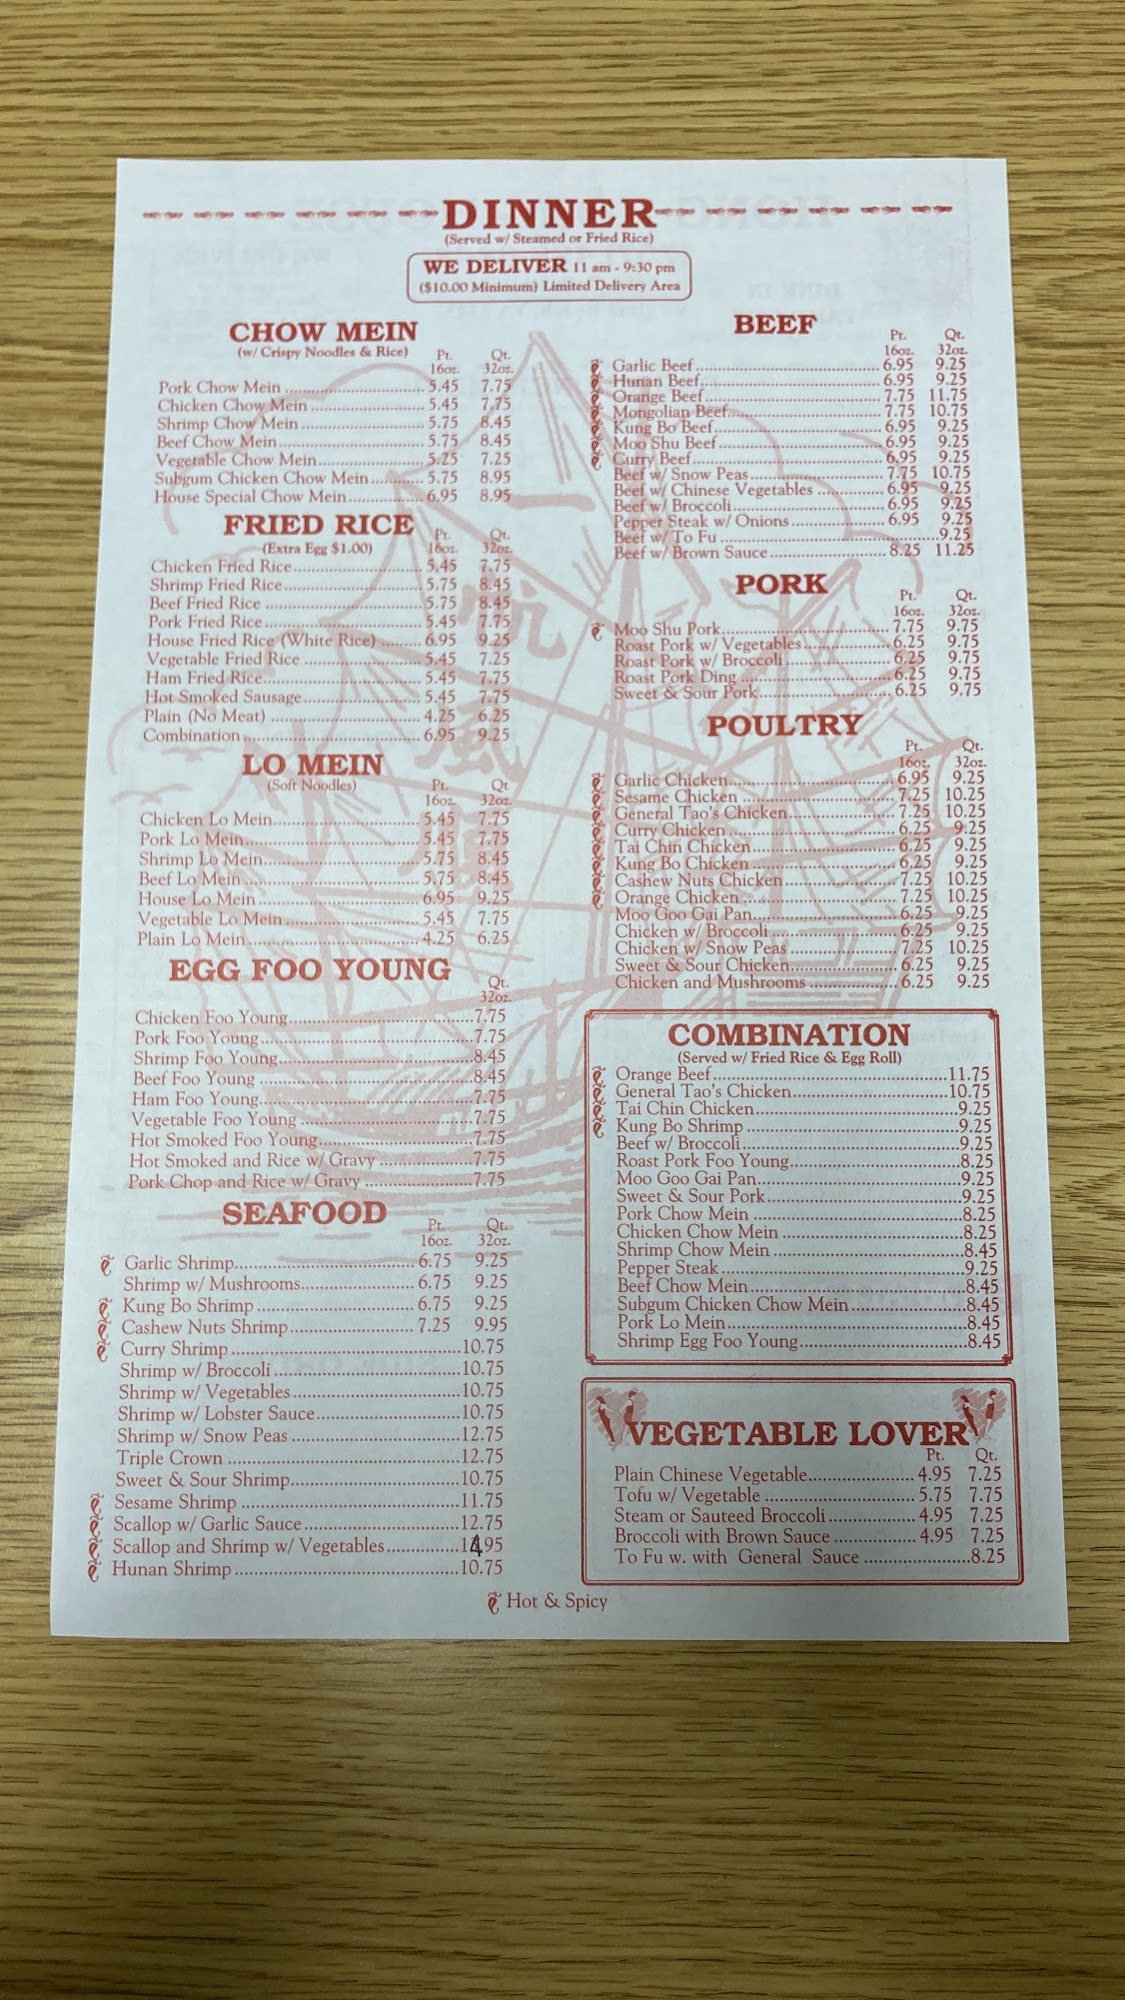 DINNER
(Served w/ Steamed or Fried Rice)
WE DELIVER 11 am - 9:30 pm
($10.00 Minimum) Limited Delivery Area
CHOW MEIN
(w/ Crispy Noodles & Rice) Pt. Qt.
16oz. 32oz.
Pork Chow Mein 5.45 7.75
Chicken Chow Mein 5.45 7.75
Shrimp Chow Mein 5.75 8.45
Beef Chow Mein 5.75 8.45
Vegetable Chow Mein 5.25 7.25
Subgum Chicken Chow Mein 5.75 8.95
House Special Chow Mein 6.95 8.95
FRIED RICE Pt. Qt.
(Extra Egg $1.00) 16oz. 32oz.
Chicken Fried Rice 5.45 7.75
Shrimp Fried Rice 5.75 8.45
Beef Fried Rice 5.75 8.45
Pork Fried Rice 5.45 7.75
House Fried Rice (White Rice) 6.95 9.25
Vegetable Fried Rice 5.45 7.25
Ham Fried Rice 5.45 7.75
Hot Smoked Sausage 5.45 7.75
Plain (No Meat) 4.25 6.25
Combination 6.95 9.25
LO MEIN
(Soft Noodles) Pt. Qt
16oz. 32oz.
Chicken Lo Mein 5.45 7.75
Pork Lo Mein 5.45 7.75
Shrimp Lo Mein 5.75 8.45
Beef Lo Mein 5.75 8.45
House Lo Mein 6.95 9.25
Vegetable Lo Mein 5.45 7.75
Plain Lo Mein 4.25 6.25
EGG FOO YOUNG
Qt.
32oz.
Chicken Foo Young 7.75
Pork Foo Young 7.75
Shrimp Foo Young 8.45
Beef Foo Young 8.45
Ham Foo Young 7.75
Vegetable Foo Young 7.75
Hot Smoked Foo Young 7.75
Hot Smoked and Rice w/ Gravy 7.75
Pork Chop and Rice w/ Gravy 7.75
SEAFOOD
Pt. Qt.
16oz. 32oz.
Garlic Shrimp 6.75 9.25
Shrimp w/ Mushrooms 6.75 9.25
Kung Bo Shrimp 6.75 9.25
Cashew Nuts Shrimp 7.25 9.95
Curry Shrimp 10.75
Shrimp w/ Broccoli 10.75
Shrimp w/ Vegetables 10.75
Shrimp w/ Lobster Sauce 10.75
Shrimp w/ Snow Peas 12.75
Triple Crown 12.75
Sweet & Sour Shrimp 10.75
Sesame Shrimp 11.75
Scallop w/ Garlic Sauce 12.75
Scallop and Shrimp w/ Vegetables 14.95
Hunan Shrimp 10.75
BEEF
Pt. Qt.
16oz. 32oz.
Garlic Beef 6.95 9.25
Hunan Beef 6.95 9.25
Orange Beef 7.75 11.75
Mongolian Beef 7.75 10.75
Kung Bo Beef 6.95 9.25
Moo Shu Beef 6.95 9.25
Curry Beef 6.95 9.25
Beef w/ Snow Peas 7.75 10.75
Beef w/ Chinese Vegetables 6.95 9.25
Beef w/ Broccoli 6.95 9.25
Pepper Steak w/ Onions 6.95 9.25
Beef w/ To Fu 9.25
Beef w/ Brown Sauce 8.25 11.25
PORK
Pt. Qt.
16oz. 32oz.
Moo Shu Pork 7.75 9.75
Roast Pork w/ Vegetables 6.25 9.75
Roast Pork w/ Broccoli 6.25 9.75
Roast Pork Ding 6.25 9.75
Sweet & Sour Pork 6.25 9.75
POULTRY
Pt. Qt.
16oz. 32oz.
Garlic Chicken 6.95 9.25
Sesame Chicken 7.25 10.25
General Tao's Chicken 7.25 10.25
Curry Chicken 6.25 9.25
Tai Chin Chicken 6.25 9.25
Kung Bo Chicken 6.25 9.25
Cashew Nuts Chicken 7.25 10.25
Orange Chicken 7.25 10.25
Moo Goo Gai Pan 6.25 9.25
Chicken w/ Broccoli 6.25 9.25
Chicken w/ Snow Peas 7.25 10.25
Sweet & Sour Chicken 6.25 9.25
Chicken and Mushrooms 6.25 9.25
COMBINATION
(Served w/ Fried Rice & Egg Roll)
Orange Beef 11.75
General Tao's Chicken 10.75
Tai Chin Chicken 9.25
Kung Bo Shrimp 9.25
Beef w/ Broccoli 9.25
Roast Pork Foo Young 8.25
Moo Goo Gai Pan 9.25
Sweet & Sour Pork 9.25
Pork Chow Mein 8.25
Chicken Chow Mein 8.25
Shrimp Chow Mein 8.45
Pepper Steak 9.25
Beef Chow Mein 8.45
Subgum Chicken Chow Mein 8.45
Pork Lo Mein 8.45
Shrimp Egg Foo Young 8.45
VEGETABLE LOVER
Pt. Qt.
Plain Chinese Vegetable 4.95 7.25
Tofu w/ Vegetable 5.75 7.75
Steam or Sauteed Broccoli 4.95 7.25
Broccoli with Brown Sauce 4.95 7.25
To Fu w. with General Sauce 8.25
Hot & Spicy
一
帆
風